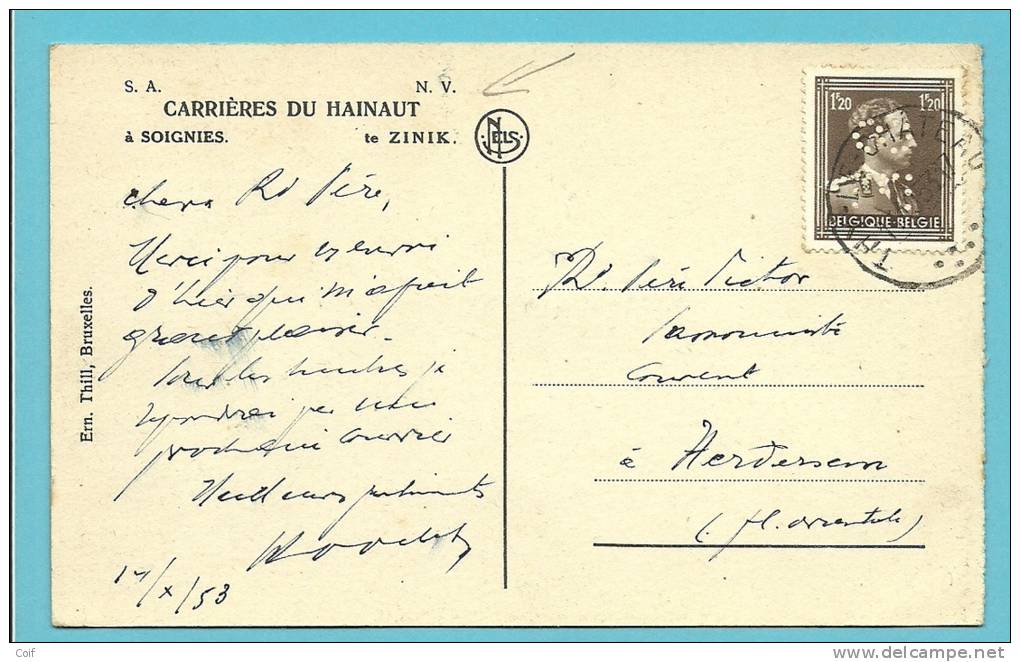 S. A. N. V.
CARRIÈRES DU HAINAUT
à SOIGNIES. te ZINIK.
NELS
1F20 1F20
BELGIQUE-BELGIE
CHATEAU
Ern. Thill, Bruxelles.
Cher Rd Père,
Merci pour envoi
d'hier qui m'a fait
grand plaisir.
je
par
prochain courrier
Meilleurs sentiments
/X/53
Rd. Père Victor
Couvent
à Herdersem
(fl. orientale)
Coif
www.delcampe.net